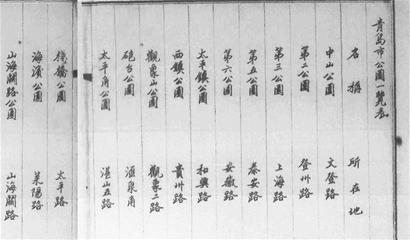 青島市公園一覽表
名稱 所在地
中山公園 文登路
第二公園 登州路
第三公園 上海路
第五公園 泰安路
第六公園 安徽路
太平鎮公園 和興路
西鎮公園 貴州路
觀象山公園 觀象二路
砲台公園 匯泉角
太平角公園 湛山五路
棧橋公園 太平路
海濱公園 萊陽路
山海關路公園 山海關路